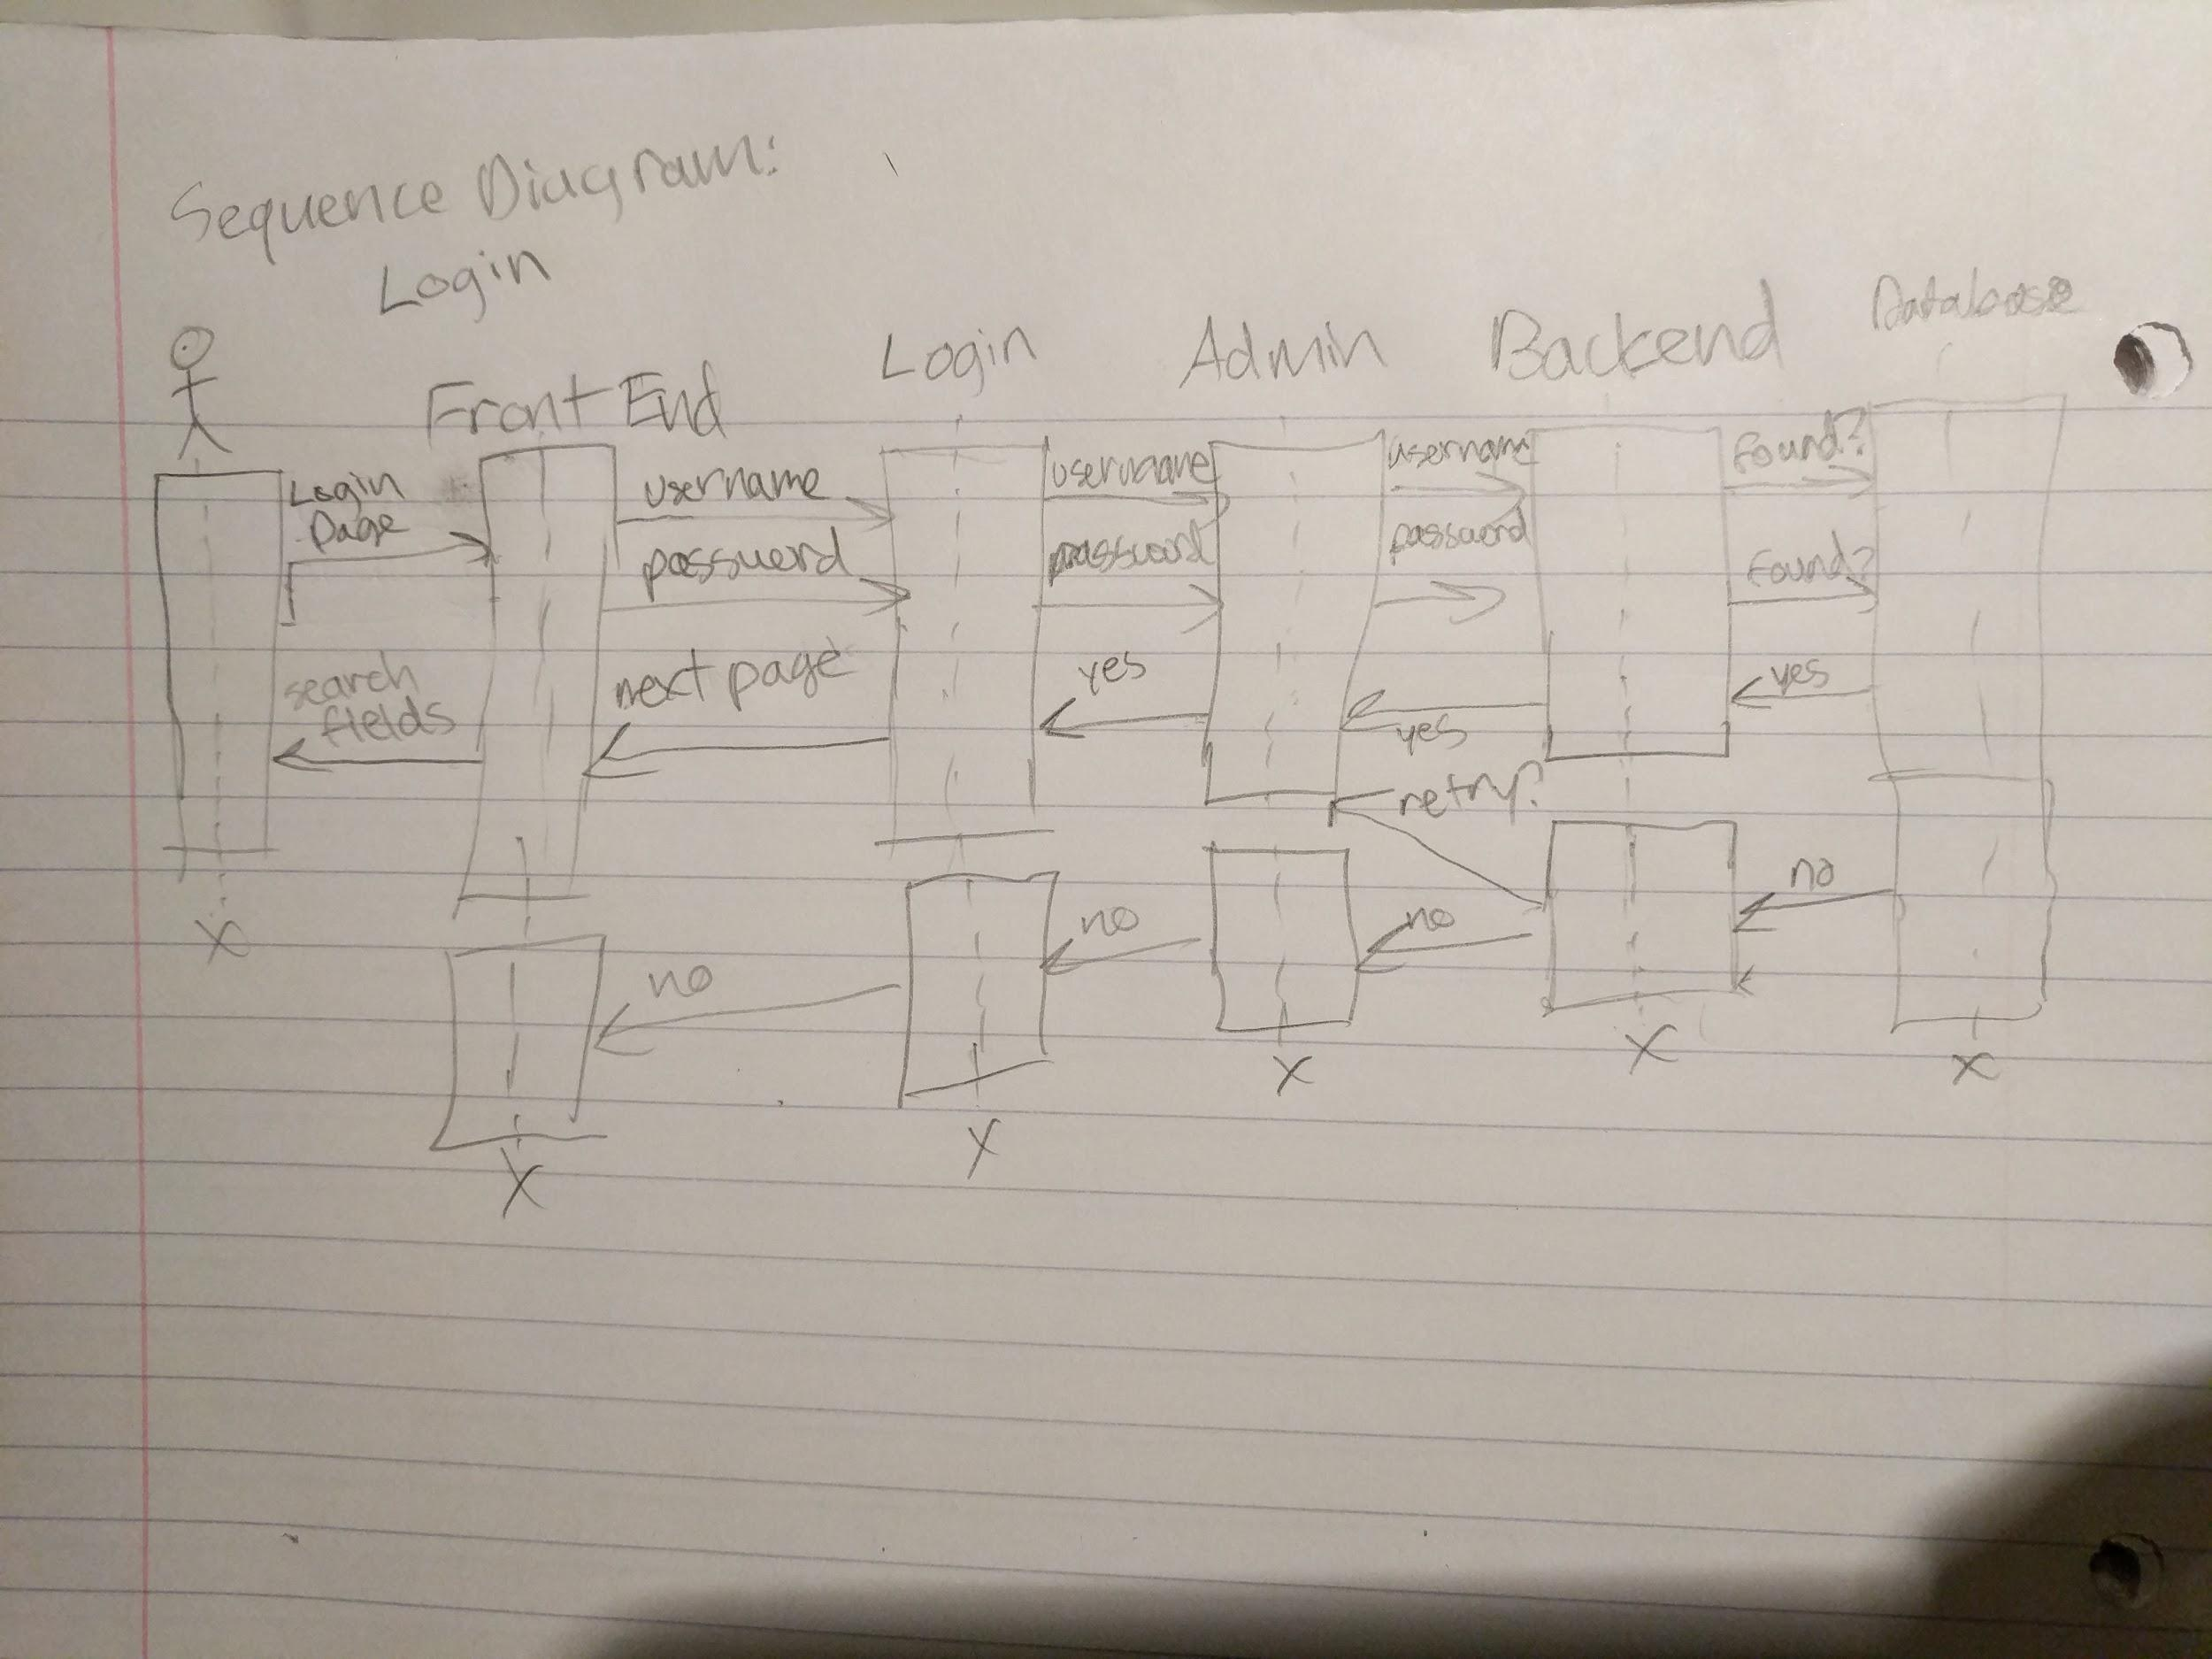 Sequence Diagram:
Login
Front End
Login
Admin
Backend
Database
Login
Page
username
username
username
found?
password
password
password
found?
search
fields
next page
yes
yes
yes
retry?
no
no
no
no
X
X
X
X
X
X